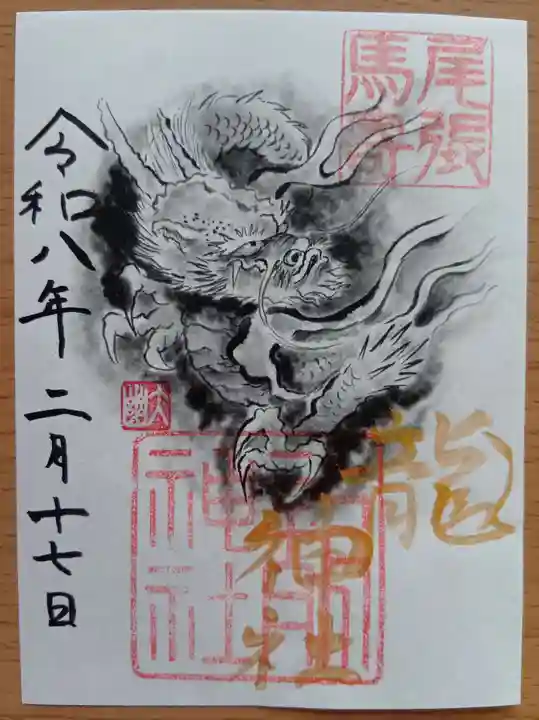 尾張
馬寄
龍神社
神社
令和八年二月十七日